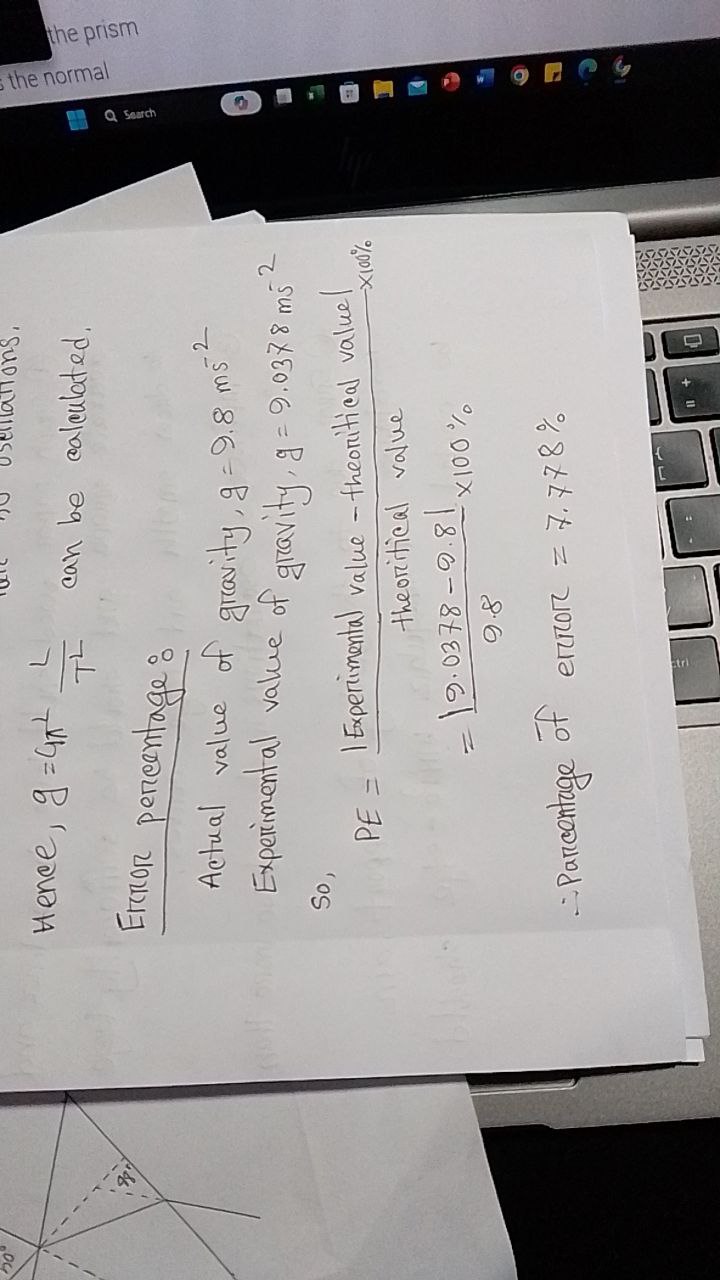 the prism
the normal
Search
oscillations.
Hence, g = 4π² L/T² can be calculated.
Error percentage:
Actual value of gravity, g = 9.8 ms⁻²
Experimental value of gravity, g = 9.0378 ms⁻²
So,
PE = |Experimental value - theoritical value| / theoritical value ×100%
= |9.0378 - 9.8| / 9.8 ×100%
∴ Parcentage of error = 7.778%
ctrl